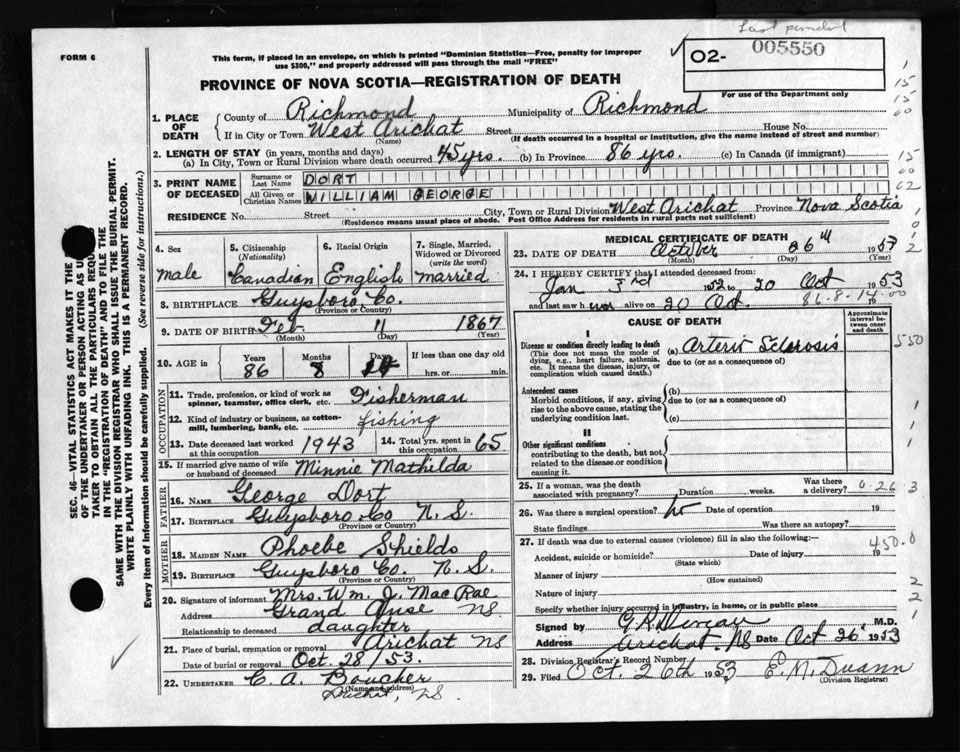 Last
FORM 6
This form, if placed in an envelope, on which is printed "Dominion Statistics—Free, penalty for improper
use $300," and properly addressed will pass through the mail "FREE"
O2-
005550
For use of the Department only
PROVINCE OF NOVA SCOTIA—REGISTRATION OF DEATH
1. PLACE OF DEATH
County of Richmond Municipality of Richmond
If in City or Town West Arichat Street House No.
(Name) (If death occurred in a hospital or institution, give the name instead of street and number)
2. LENGTH OF STAY (in years, months and days)
(a) In City, Town or Rural Division where death occurred 45 yrs. (b) In Province 86 yrs. (c) In Canada (if immigrant)
3. PRINT NAME OF DECEASED
Surname or Last Name DORT
All Given or Christian Names WILLIAM GEORGE
RESIDENCE No. Street City, Town or Rural Division West Arichat Province Nova Scotia
(Residence means usual place of abode. Post Office Address for residents in rural parts not sufficient)
4. Sex male
5. Citizenship (Nationality) Canadian
6. Racial Origin English
7. Single, Married, Widowed or Divorced (write the word) married
8. BIRTHPLACE Guysboro Co.
(Province or Country)
9. DATE OF BIRTH Feb 11 1867
(Month) (Day) (Year)
10. AGE in
Years Months Days If less than one day old
86 8 hrs. or min.
OCCUPATION
11. Trade, profession, or kind of work as spinner, teamster, office clerk, etc. Fisherman
12. Kind of industry or business, as cotton-mill, lumbering, bank, etc. fishing
13. Date deceased last worked at this occupation 1943
14. Total yrs. spent in this occupation 65
15. If married give name of wife or husband of deceased Minnie Mathilda
FATHER
16. NAME George Dort
17. BIRTHPLACE Guysboro Co N.S.
(Province or Country)
MOTHER
18. MAIDEN NAME Phoebe Shields
19. BIRTHPLACE Guysboro Co. N.S.
(Province or Country)
20. Signature of informant Mrs. Wm. J. MacRae
Address Grand Anse NS
Relationship to deceased daughter
21. Place of burial, cremation or removal Arichat NS
Date of burial or removal Oct. 28/53.
22. UNDERTAKER C. A. Boucher
(Name and address)
Arichat, NS.
MEDICAL CERTIFICATE OF DEATH
23. DATE OF DEATH October 26th 1953
(Month) (Day) (Year)
24. I HEREBY CERTIFY that I attended deceased from:
Jan 3rd 1952 to 20 Oct 1953
and last saw him alive on 20 Oct. 19
86-8-14-00
CAUSE OF DEATH
Approximate interval between onset and death
I
Disease or condition directly leading to death
(This does not mean the mode of dying, e.g., heart failure, asthenia, etc. It means the disease, injury, or complication which caused death.)
(a) Arterio Sclorosis
due to (or as a consequence of)
Antecedent causes
Morbid conditions, if any, giving rise to the above cause, stating the underlying condition last.
(b)
due to (or as a consequence of)
(c)
II
Other significant conditions
contributing to the death, but not related to the disease or condition causing it.
25. If a woman, was the death associated with pregnancy? Duration weeks. Was there a delivery? 0-26-3
26. Was there a surgical operation? No Date of operation 19
State findings Was there an autopsy?
27. If death was due to external causes (violence) fill in also the following:
450.0
Accident, suicide or homicide? Date of injury 19
(State which)
Manner of injury
(How sustained)
Nature of injury
Specify whether injury occurred in industry, in home, or in public place
Signed by M.D.
Address Arichat. NS Date Oct 26 1953
28. Division Registrar's Record Number
29. Filed Oct. 26th 1953
(Division Registrar)
SEC. 46—VITAL STATISTICS ACT MAKES IT THE
OF THE UNDERTAKER OR PERSON ACTING AS
TAKER TO OBTAIN ALL THE PARTICULARS
IN THE "REGISTRATION OF DEATH" AND TO FILE THE
SAME WITH THE DIVISION REGISTRAR WHO SHALL ISSUE THE BURIAL PERMIT.
WRITE PLAINLY WITH UNFADING INK. THIS IS A PERMANENT RECORD.
Every item of information should be carefully supplied. (See reverse side for instructions.)
1
15
15
60
15
60
62
550